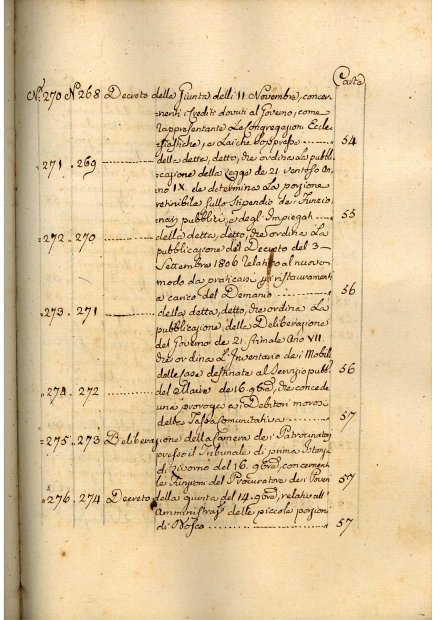 Carta
N.º 270 N.º 268 Decreto della Giunta delli 11 Novembre, concer-
nenti i Crediti dovuti al Governo, come
rappresentante Le Congregazioni Eccle-
siastiche, e Laiche soppresse 54
271. 269. della detta, detto, che ordina La pubbli-
cazione della Legge de 21 ventoso An-
no IX. che determina La porzione
retinibile sullo Stipendio de i Funzio-
nari pubblici, e degl' Impiegati 55
272. 270 della detta, detto, che ordina La
pubblicazione del Decreto del 3
Settembre 1806 relativo al nuovo
modo da praticarsi pei ristauramenti
a carico del Demanio 56
273. 271 della detta, detto, che ordina La
pubblicazione della Deliberazione
del Governo de 21 frimale Anno VII.
che ordina L'Inventario dei Mobili
delle Case destinate al Servizio pubb.º 56
274. 272 del Maire de 16. 9bre, che concede
una proroga ai Debitori morosi
della Tassa Comunitativa 57
275. 273 Deliberazione della Camera dei Patrocinatori
presso il Tribunale di prima Istanza
di Livorno del 16. 9bre, concernente
le Funzioni del Procuratore dei Poveri 57
276. 274 Decreto della giunta del 14. 9bre, relativo all'
Amministraz. delle piccole porzioni
di Bosco 57